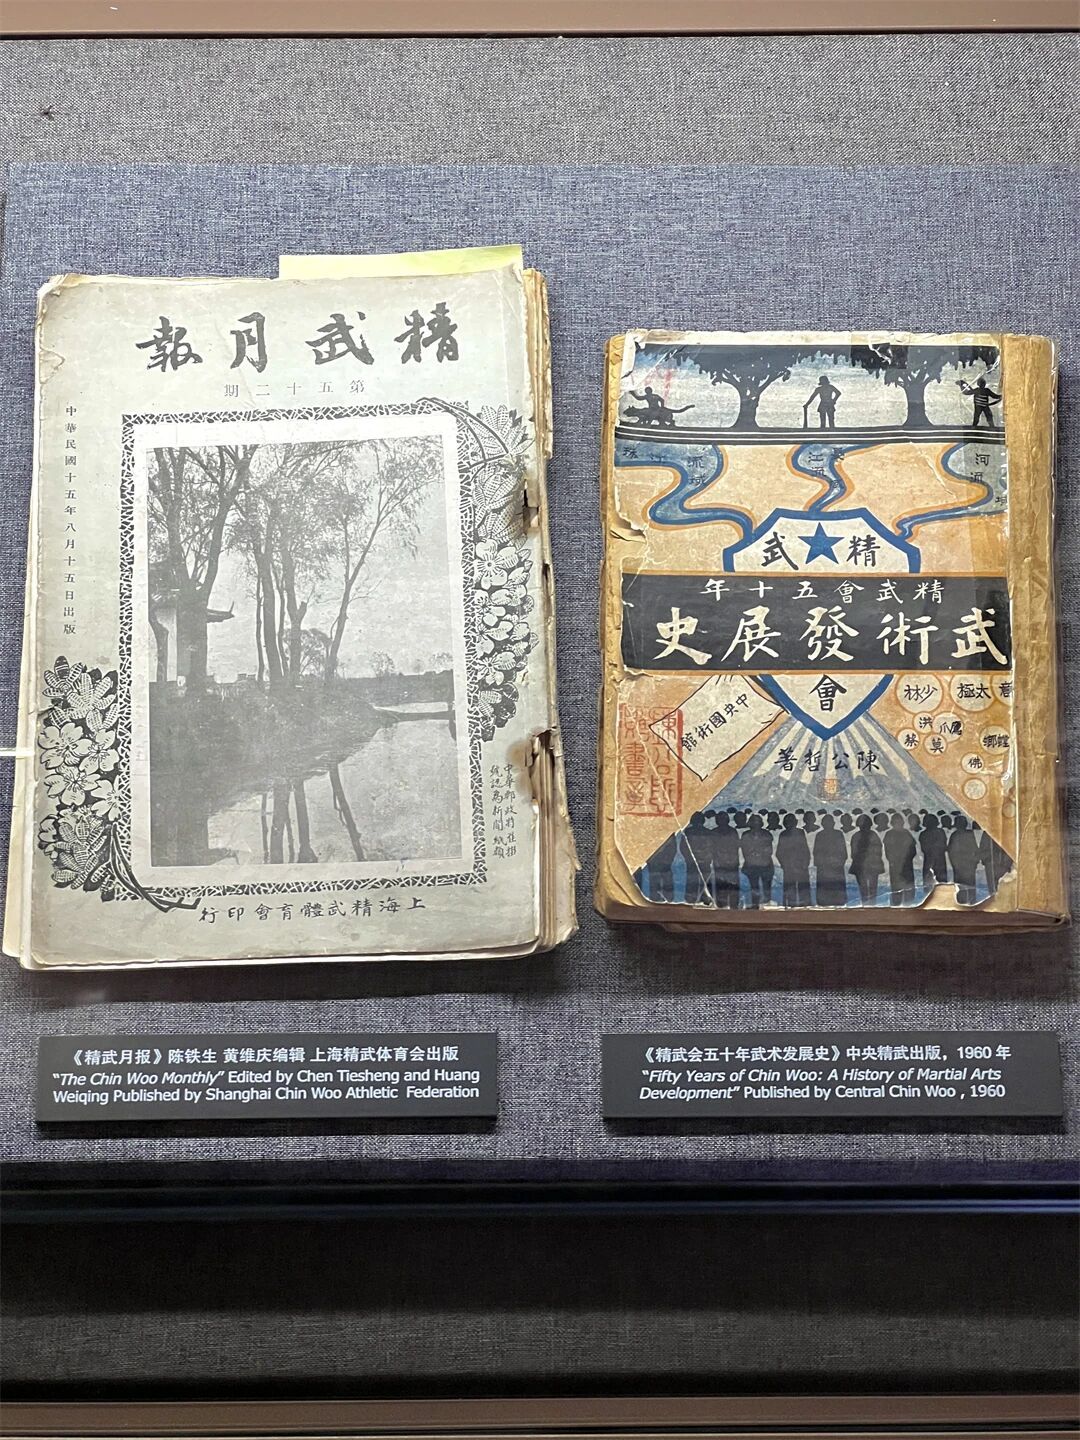 精武月報
第五十二期
中華民國十五年八月十五日出版
中華郵政特准掛
號認為新聞紙類
上海精武體育會印行
河流域
精武
精武會五十年
武術發展史
會
中央國術館
陳公哲著
少林
太極
洪
莫
蔡
佛
螳螂
《精武月报》陈铁生 黄维庆编辑 上海精武体育会出版
“The Chin Woo Monthly” Edited by Chen Tiesheng and Huang
Weiqing Published by Shanghai Chin Woo Athletic Federation
《精武会五十年武术发展史》中央精武出版，1960 年
“Fifty Years of Chin Woo: A History of Martial Arts
Development” Published by Central Chin Woo , 1960